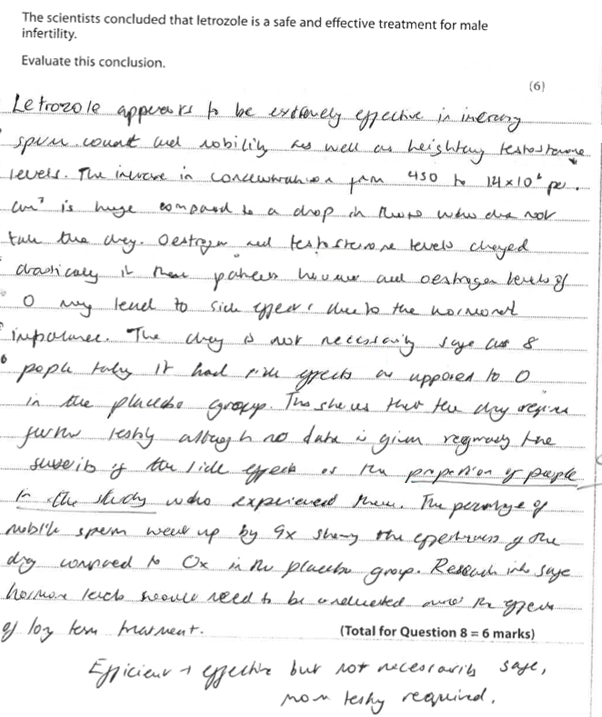 The scientists concluded that letrozole is a safe and effective treatment for male
infertility.
Evaluate this conclusion.
(6)
Letrozole appears to be extremely effective in increasing
sperm count and mobility as well as heightening testosterone
levels. The increase in concentration from 450 to 14x10⁶ per
cm³ is huge compared to a drop in those who did not
take the drug. Oestrogen and testosterone levels changed
drastically in these patients however and oestrogen levels of
0 may lead to side effects due to the hormonal
imbalance. The drug is not necessarily safe as 8
people taking it had side effects as opposed to 0
in the placebo group. This shows that the drug requires
further testing although no data is given regarding the
severity of the side effects or the proportion of people
in the study who experienced them. The percentage of
mobile sperm went up by 9x showing the effectiveness of the
drug compared to 0x in the placebo group. Research into safe
hormone levels would need to be conducted and the effects
of long term treatment.
(Total for Question 8 = 6 marks)
Efficient + effective but not necessarily safe,
more testing required.